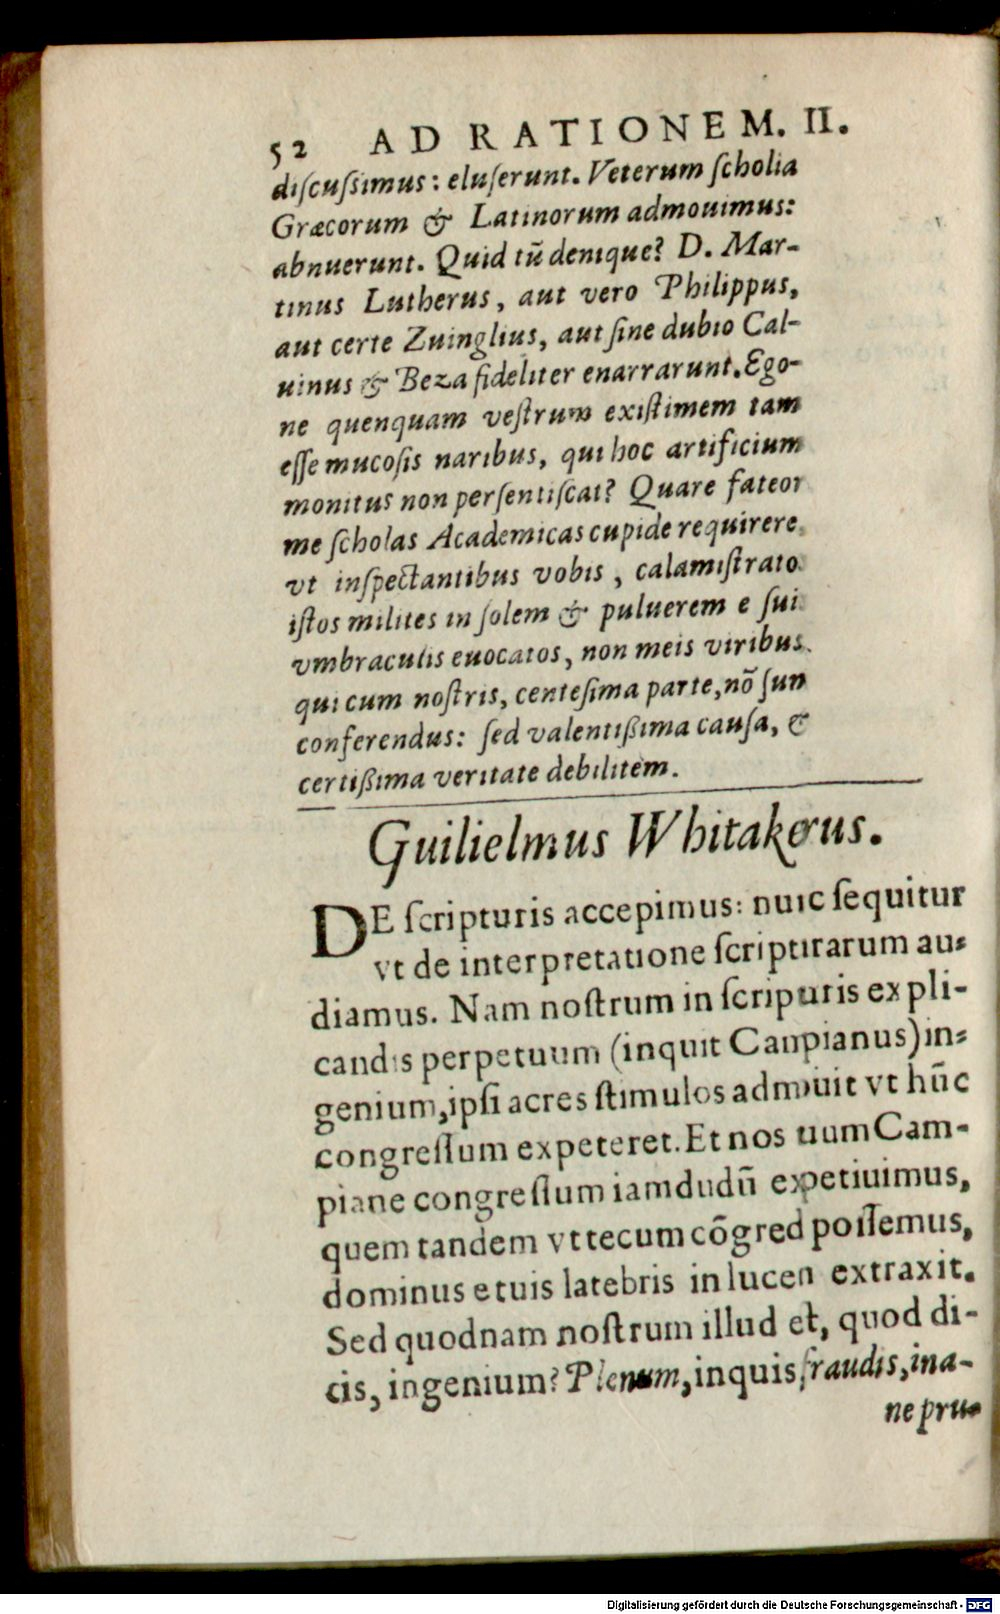 52 AD RATIONEM. II.
diſcuſſimus: eluſerunt. Veterum ſcholia
Græcorum & Latinorum admouimus:
abnuerunt. Quid tũ denique? D. Mar-
tinus Lutherus, aut vero Philippus,
aut certe Zuinglius, aut ſine dubio Cal-
uinus & Beza fideliter enarrarunt. Ego-
ne quenquam veſtrum exiſtimem tam
eſſe mucoſis naribus, qui hoc artificium
monitus non perſentiſcat? Quare fateor
me ſcholas Academicas cupide requirere,
vt inſpectantibus vobis, calamiſtrato
iſtos milites in ſolem & puluerem e ſui
vmbraculis euocatos, non meis viribus,
qui cum noſtris, centeſima parte, nõ ſun
conferendus: ſed valentißima cauſa, &
certißima veritate debilitem.
Guilielmus Whitakerus.
DE ſcripturis accepimus: nuic ſequitur
vt de interpretatione ſcripturarum au-
diamus. Nam noſtrum in ſcripturis expli-
candis perpetuum (inquit Canpianus) in-
genium, ipſi acres ſtimulos admouit vt hũc
congreſſum expeteret. Et nos tuum Cam-
piane congreſſum iamdudũ expetiuimus,
quem tandem vt tecum cõgred poſſemus,
dominus e tuis latebris in lucen extraxit.
Sed quodnam noſtrum illud eſt, quod di-
cis, ingenium? Plenum, inquis fraudis, ina-
ne pru-
Digitalisierung gefördert durch die Deutsche Forschungsgemeinschaft - DFG